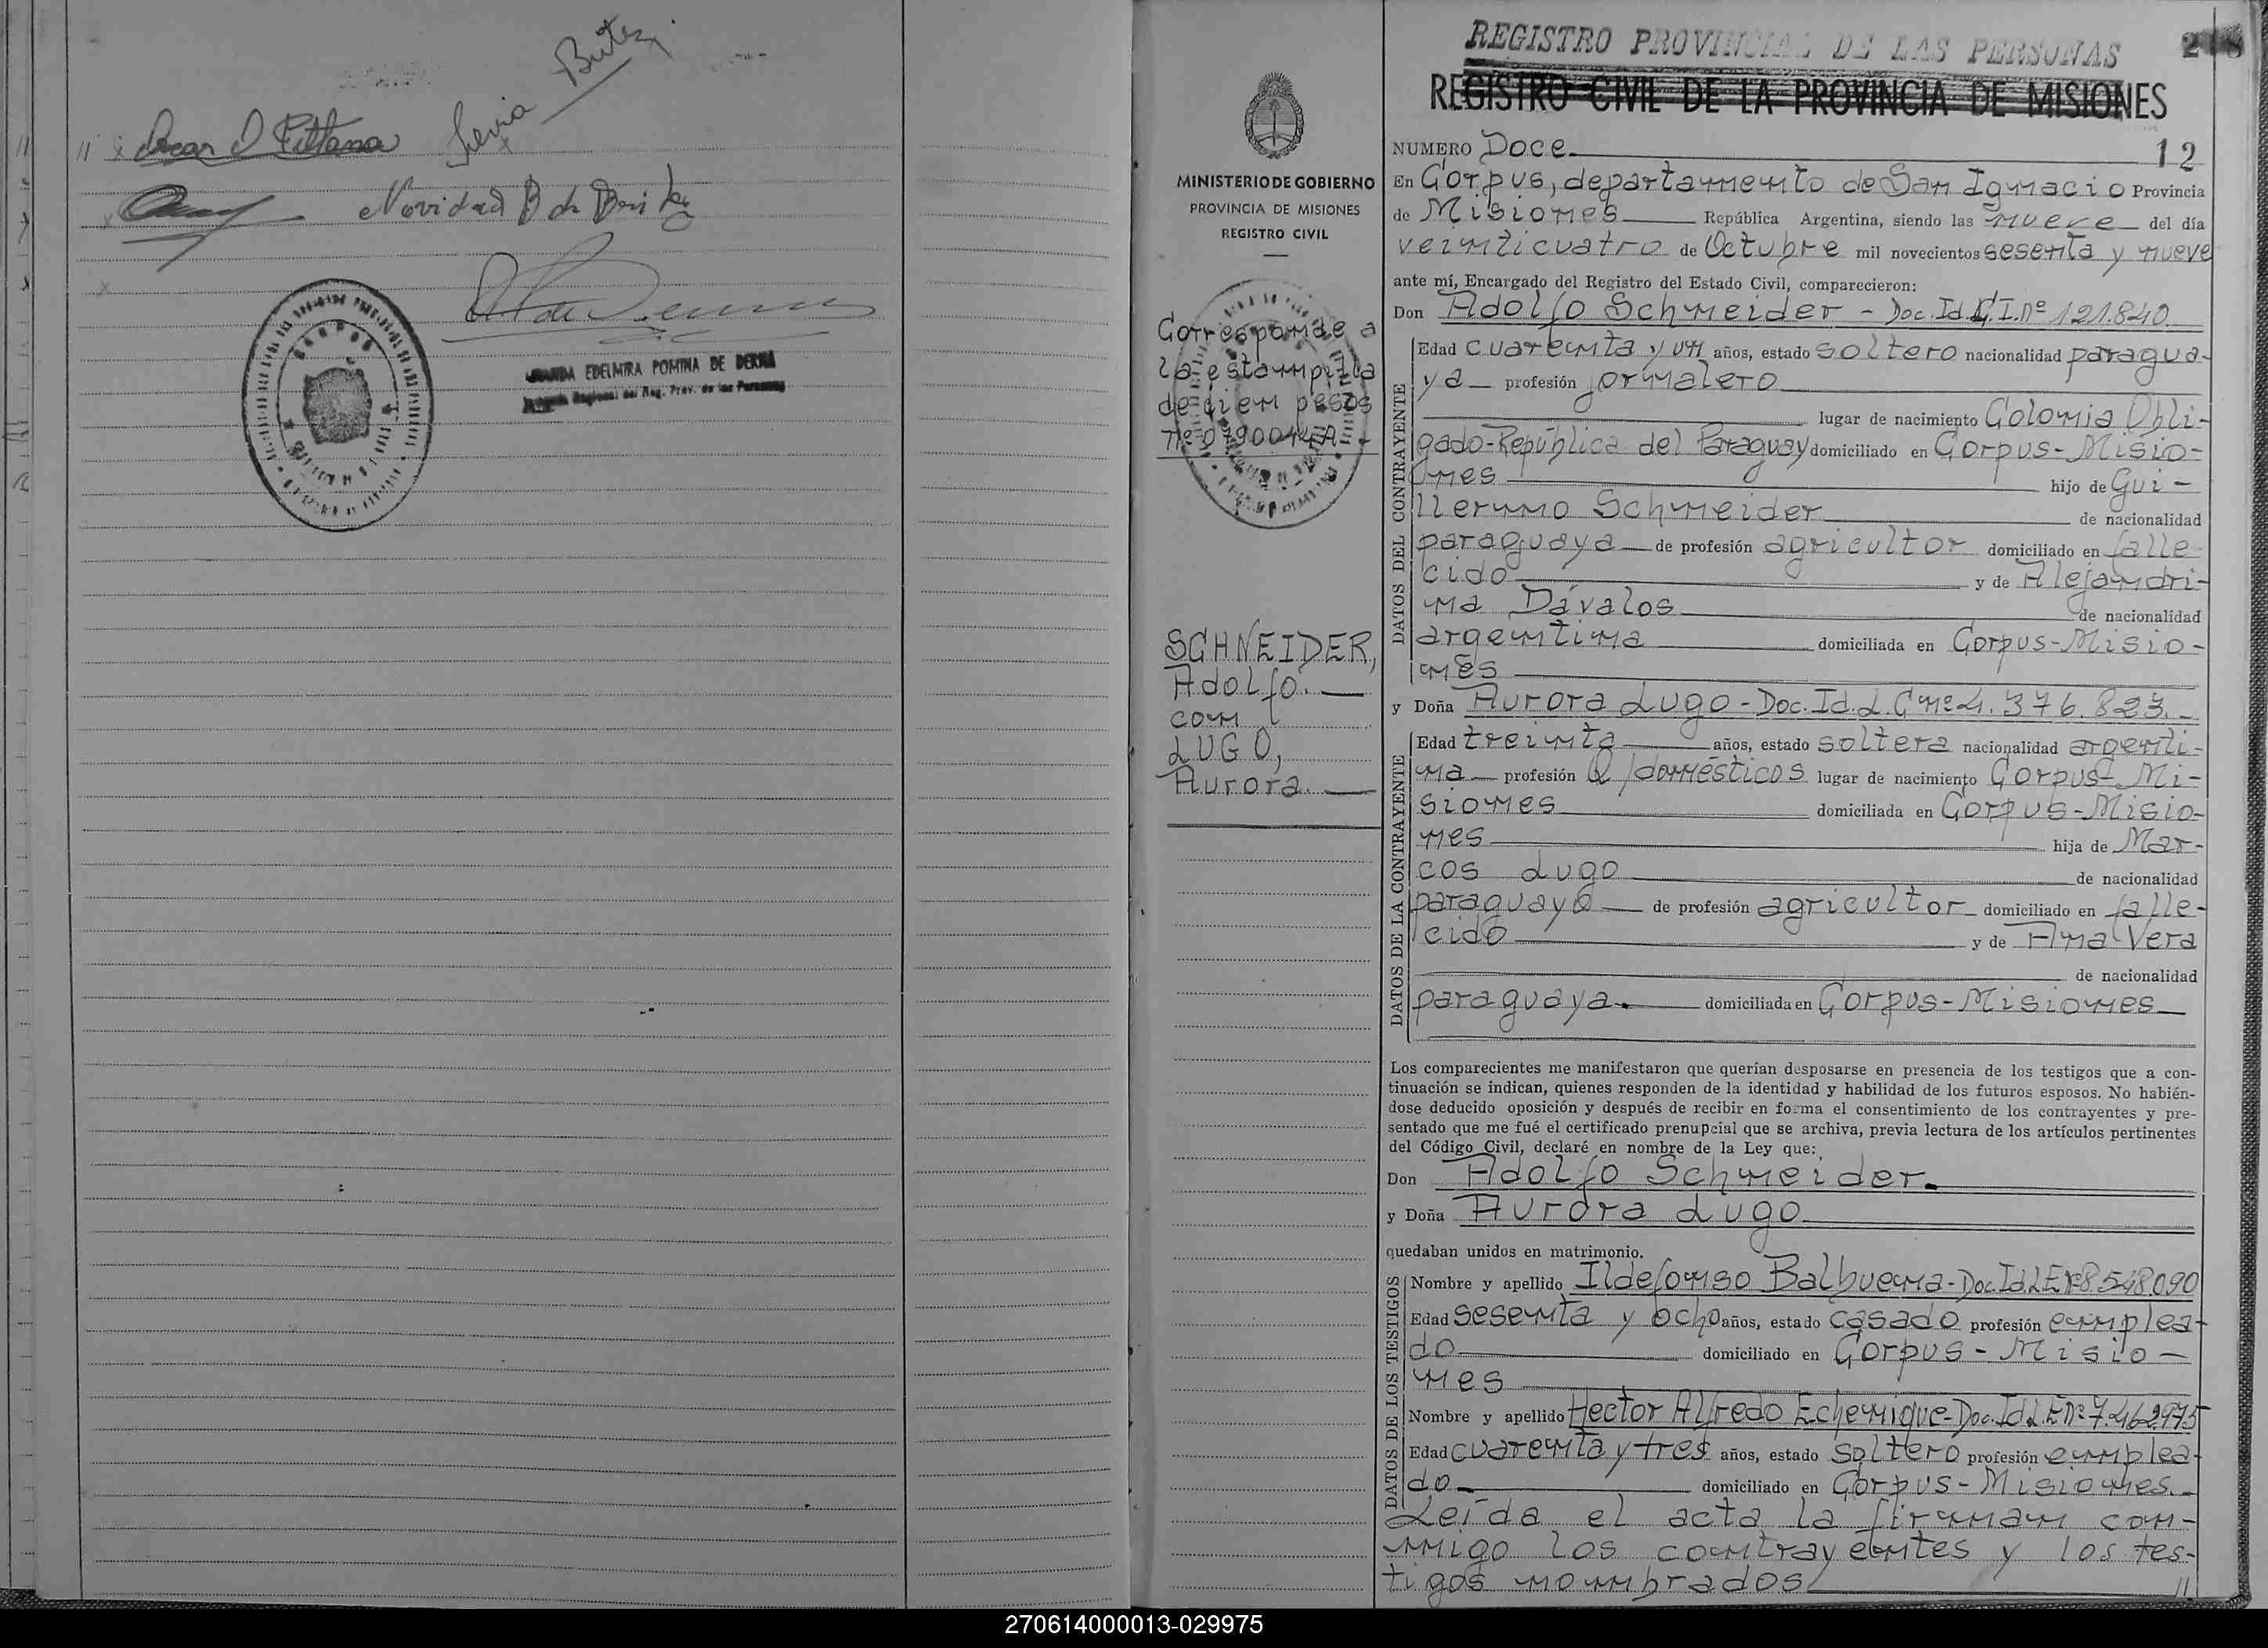 Silvia Britez
// x Oscar D Pittana
Navidad B de Britez
WANDA EDELMIRA POMINA DE DERNA
Encargada Regional del Reg. Prov. de las Personas
REGISTRO PROVINCIAL DE LAS PERSONAS
REGISTRO CIVIL DE LA PROVINCIA DE MISIONES
MINISTERIO DE GOBIERNO
PROVINCIA DE MISIONES
REGISTRO CIVIL
Corresponde a
la estampilla
de cien pesos
SCHNEIDER,
Adolfo.
con
LUGO,
Aurora.
NUMERO Doce. 12
En Corpus, departamento de San Ignacio Provincia
de Misiones República Argentina, siendo las nueve del día
veinticuatro de Octubre mil novecientos sesenta y nueve
ante mí, Encargado del Registro del Estado Civil, comparecieron:
Don Adolfo Schneider - Doc. Id. C.I. nº 121.840
DATOS DEL CONTRAYENTE
Edad cuarenta y un años, estado soltero nacionalidad paragua-
ya profesión jornalero
lugar de nacimiento Colonia Obli-
gado-República del Paraguay domiciliado en Corpus-Misio-
nes hijo de Gui-
llermo Schneider de nacionalidad
paraguaya de profesión agricultor domiciliado en falle-
cido y de Alejandri-
na Dávalos de nacionalidad
argentina domiciliada en Corpus-Misio-
nes
y Doña Aurora Lugo - Doc. Id. L. C nº 4.376.823.
DATOS DE LA CONTRAYENTE
Edad treinta años, estado soltera nacionalidad argenti-
na profesión Q/domésticos lugar de nacimiento Corpus-Mi-
siones domiciliada en Corpus-Misio-
nes hija de Mar-
cos Lugo de nacionalidad
paraguayo de profesión agricultor domiciliado en falle-
cido y de Ana Vera
de nacionalidad
paraguaya. domiciliada en Corpus-Misiones
Los comparecientes me manifestaron que querían desposarse en presencia de los testigos que a con-
tinuación se indican, quienes responden de la identidad y habilidad de los futuros esposos. No habién-
dose deducido oposición y después de recibir en forma el consentimiento de los contrayentes y pre-
sentado que me fué el certificado prenupcial que se archiva, previa lectura de los artículos pertinentes
del Código Civil, declaré en nombre de la Ley que:
Don Adolfo Schneider.
y Doña Aurora Lugo
quedaban unidos en matrimonio.
DATOS DE LOS TESTIGOS
Nombre y apellido Ildefonso Balbuena-Doc. Id. L E Nº 8.548.090
Edad sesenta y ocho años, estado casado profesión emplea-
do domiciliado en Corpus-Misio-
nes
Nombre y apellido Hector Alfredo Echenique-Doc. Id. L. E nº 7.462.975
Edad cuarenta y tres años, estado soltero profesión emplea-
do domiciliado en Corpus-Misiones.
Leída el acta la firman con-
migo los contrayentes y los tes-
tigos nombrados //
270614000013-029975